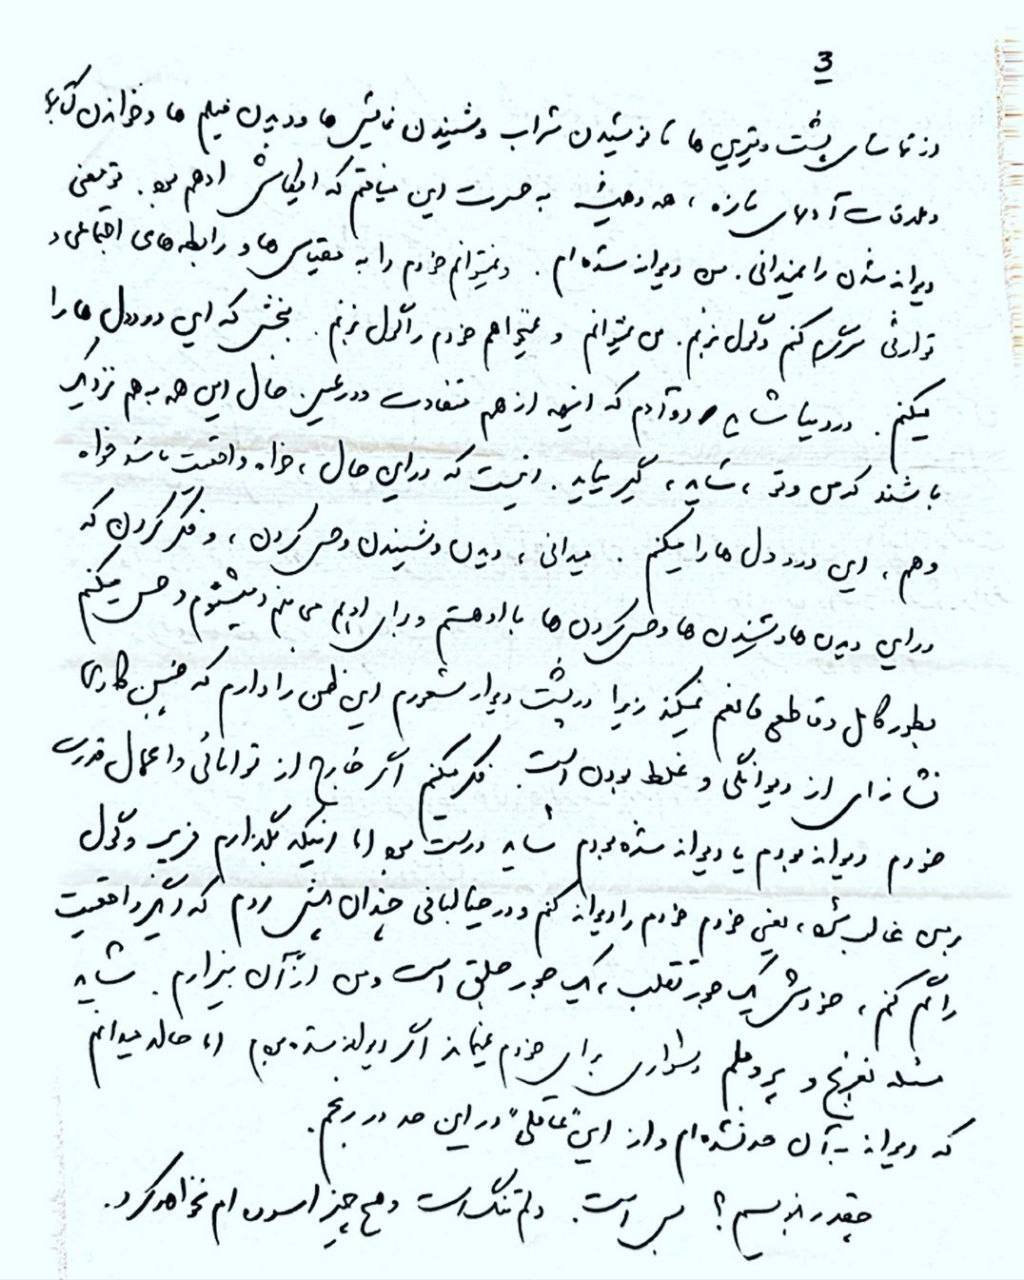 3
از تماشای پشت ویترین ها تا نوشیدن شراب و شنیدن نمایش ها و دیدن فیلم ها و خواندن کتابها
و ملاقات آدمهای تازه ، همه و همیشه به حسرت این میافتم که ایکاش او هم بود . تو معنی
دیوانه شدن را میدانی . من دیوانه شده ام . و نمیتوانم خودم را به مقیاس ها و رابطه های اجتماعی و
توارثی سرگرم کنم و گول بزنم . من نمیتوانم و نمیخواهم خودم را گول بزنم . ببخش که این درددل ها را
میکنم . در دنیا شاید دو آدم که اینهمه از هم متفاوت و در عین حال این همه به هم نزدیک
باشند که من و تو ، شاید ، گیر بیاید . اینست که در این حال ، خواه واقعیت باشد خواه
وهم ، این درد دل ها را میکنم . میدانی ، دیدن و شنیدن و حس کردن ، و فکر کردن که
در این دیدن ها و شنیدن ها و حس کردن ها با او هستم و برای او می بینم و میشنوم و حس میکنم
بطور کامل و قاطع قانعم نمیکند زیرا در پشت دیوار شعورم این ظن را دارم که چنین کاری
نشانه ای از دیوانگی و غلط بودن است . فکر میکنم اگر خارج از توانائی و اعمال قدرت
خودم دیوانه بودم یا دیوانه شده بودم شاید درست بود اما اینکه بگذارم فریب و گول
بر من غالب شود ، یعنی خودم خودم را دیوانه کنم و در خیالبافی چندان پیش روم که واقعیت
را گم کنم ، خودش یک جور تقلب ، یک جور جلقی است و من از آن بیزارم . شاید
مسئله بغرنج و پروبلم دشواری برای خودم نمیماند اگر دیوانه شده بودم اما حالا میدانم
که دیوانه به آن حد نشده ام و از این "عاقلی" در این حد در رنجم .
چقدر بنویسم ؟ بس است . دلم تنگ است و هیچ چیز آسوده ام نخواهد کرد .